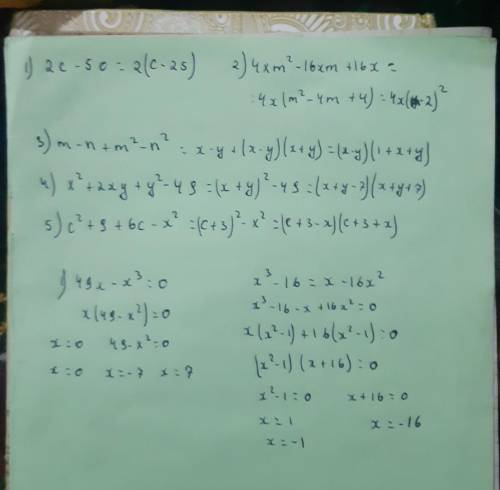 1) 2c - 50 = 2(c - 25) 2) 4xm² - 16xm + 16x =
= 4x(m² - 4m + 4) = 4x(m-2)²
3) m - n + m² - n² = x - y + (x - y)(x + y) = (x-y)(1 + x + y)
4) x² + 2xy + y² - 49 = (x + y)² - 49 = (x + y - 7)(x + y + 7)
5) c² + 9 + 6c - x² = (c + 3)² - x² = (c + 3 - x)(c + 3 + x)
1) 49x - x³ = 0
x(49 - x²) = 0
x = 0 49 - x² = 0
x = 0 x = -7 x = 7
x³ - 16 = x - 16x²
x³ - 16 - x + 16x² = 0
x(x² - 1) + 16(x² - 1) = 0
(x² - 1)(x + 16) = 0
x² - 1 = 0 x + 16 = 0
x = 1 x = -16
x = -1